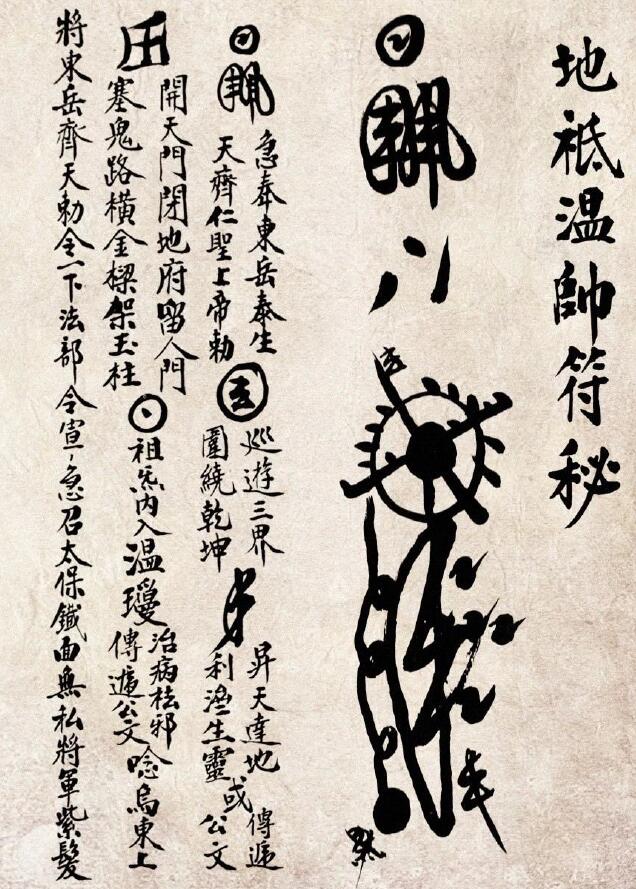 地祇温帥符秘
急奉東岳泰生
天齊仁聖上帝勅
巡遊三界
圍繞乾坤
昇天達地
利濟生靈
或
傳遞
公文
開天門閉地府留人門
塞鬼路橫金樑架玉柱
祖炁內入温瓊
治病祛邪
傳遞公文
唸烏東上
將東岳齊天勅令一下法部令宣急召太保鐵面無私將軍紫髮